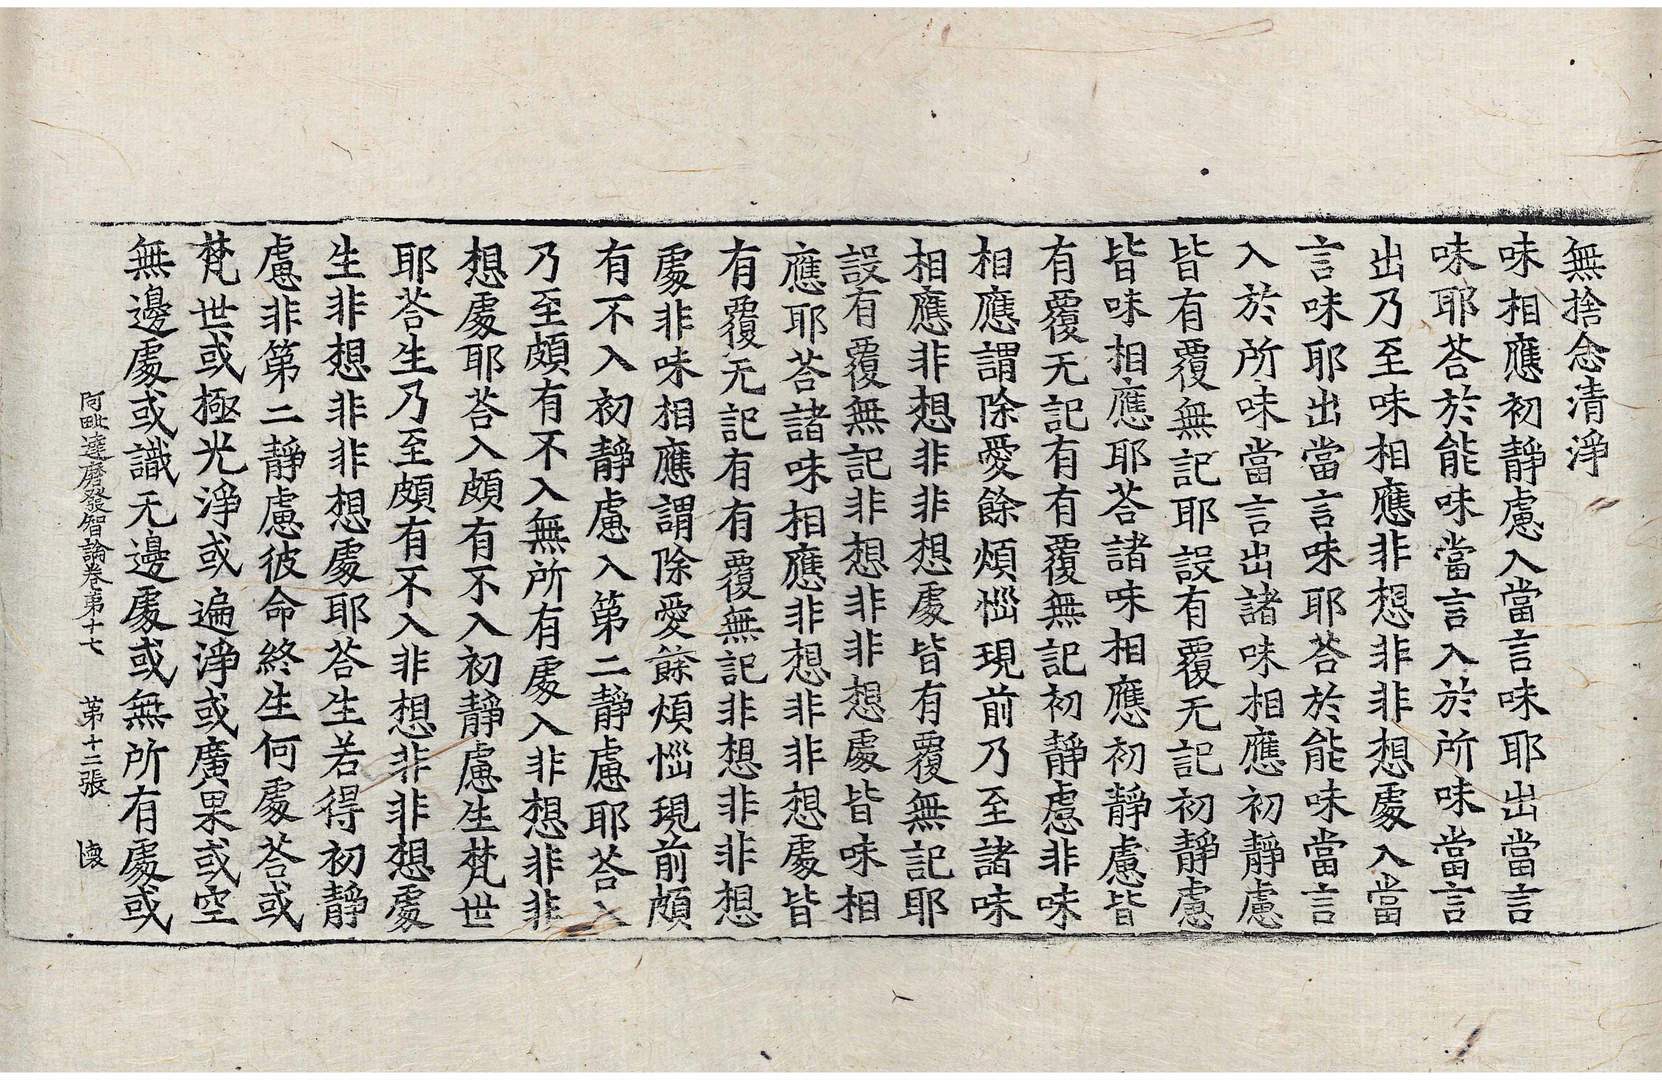 無捨念清淨
味相應初靜慮入當言味耶出當言
味耶荅於能味當言入於所味當言
出乃至味相應非想非非想處入當
言味耶出當言味耶荅於能味當言
入於所味當言出諸味相應初靜慮
皆有覆無記耶設有覆无記初靜慮
皆味相應耶荅諸味相應初靜慮皆
有覆无記有有覆無記初靜慮非味
相應謂除愛餘煩惱現前乃至諸味
相應非想非非想處皆有覆無記耶
設有覆無記非想非非想處皆味相
應耶荅諸味相應非想非非想處皆
有覆无記有有覆無記非想非非想
處非味相應謂除愛餘煩惱現前頗
有不入初靜慮入第二靜慮耶荅入
乃至頗有不入無所有處入非想非非
想處耶荅入頗有不入初靜慮生梵世
耶荅生乃至頗有不入非想非非想處
生非想非非想處耶荅生若得初靜
慮非第二靜慮彼命終生何處荅或
梵世或極光淨或遍淨或廣果或空
無邊處或識无邊處或無所有處或
阿毗達磨發智論卷第十七 第十二張 懷